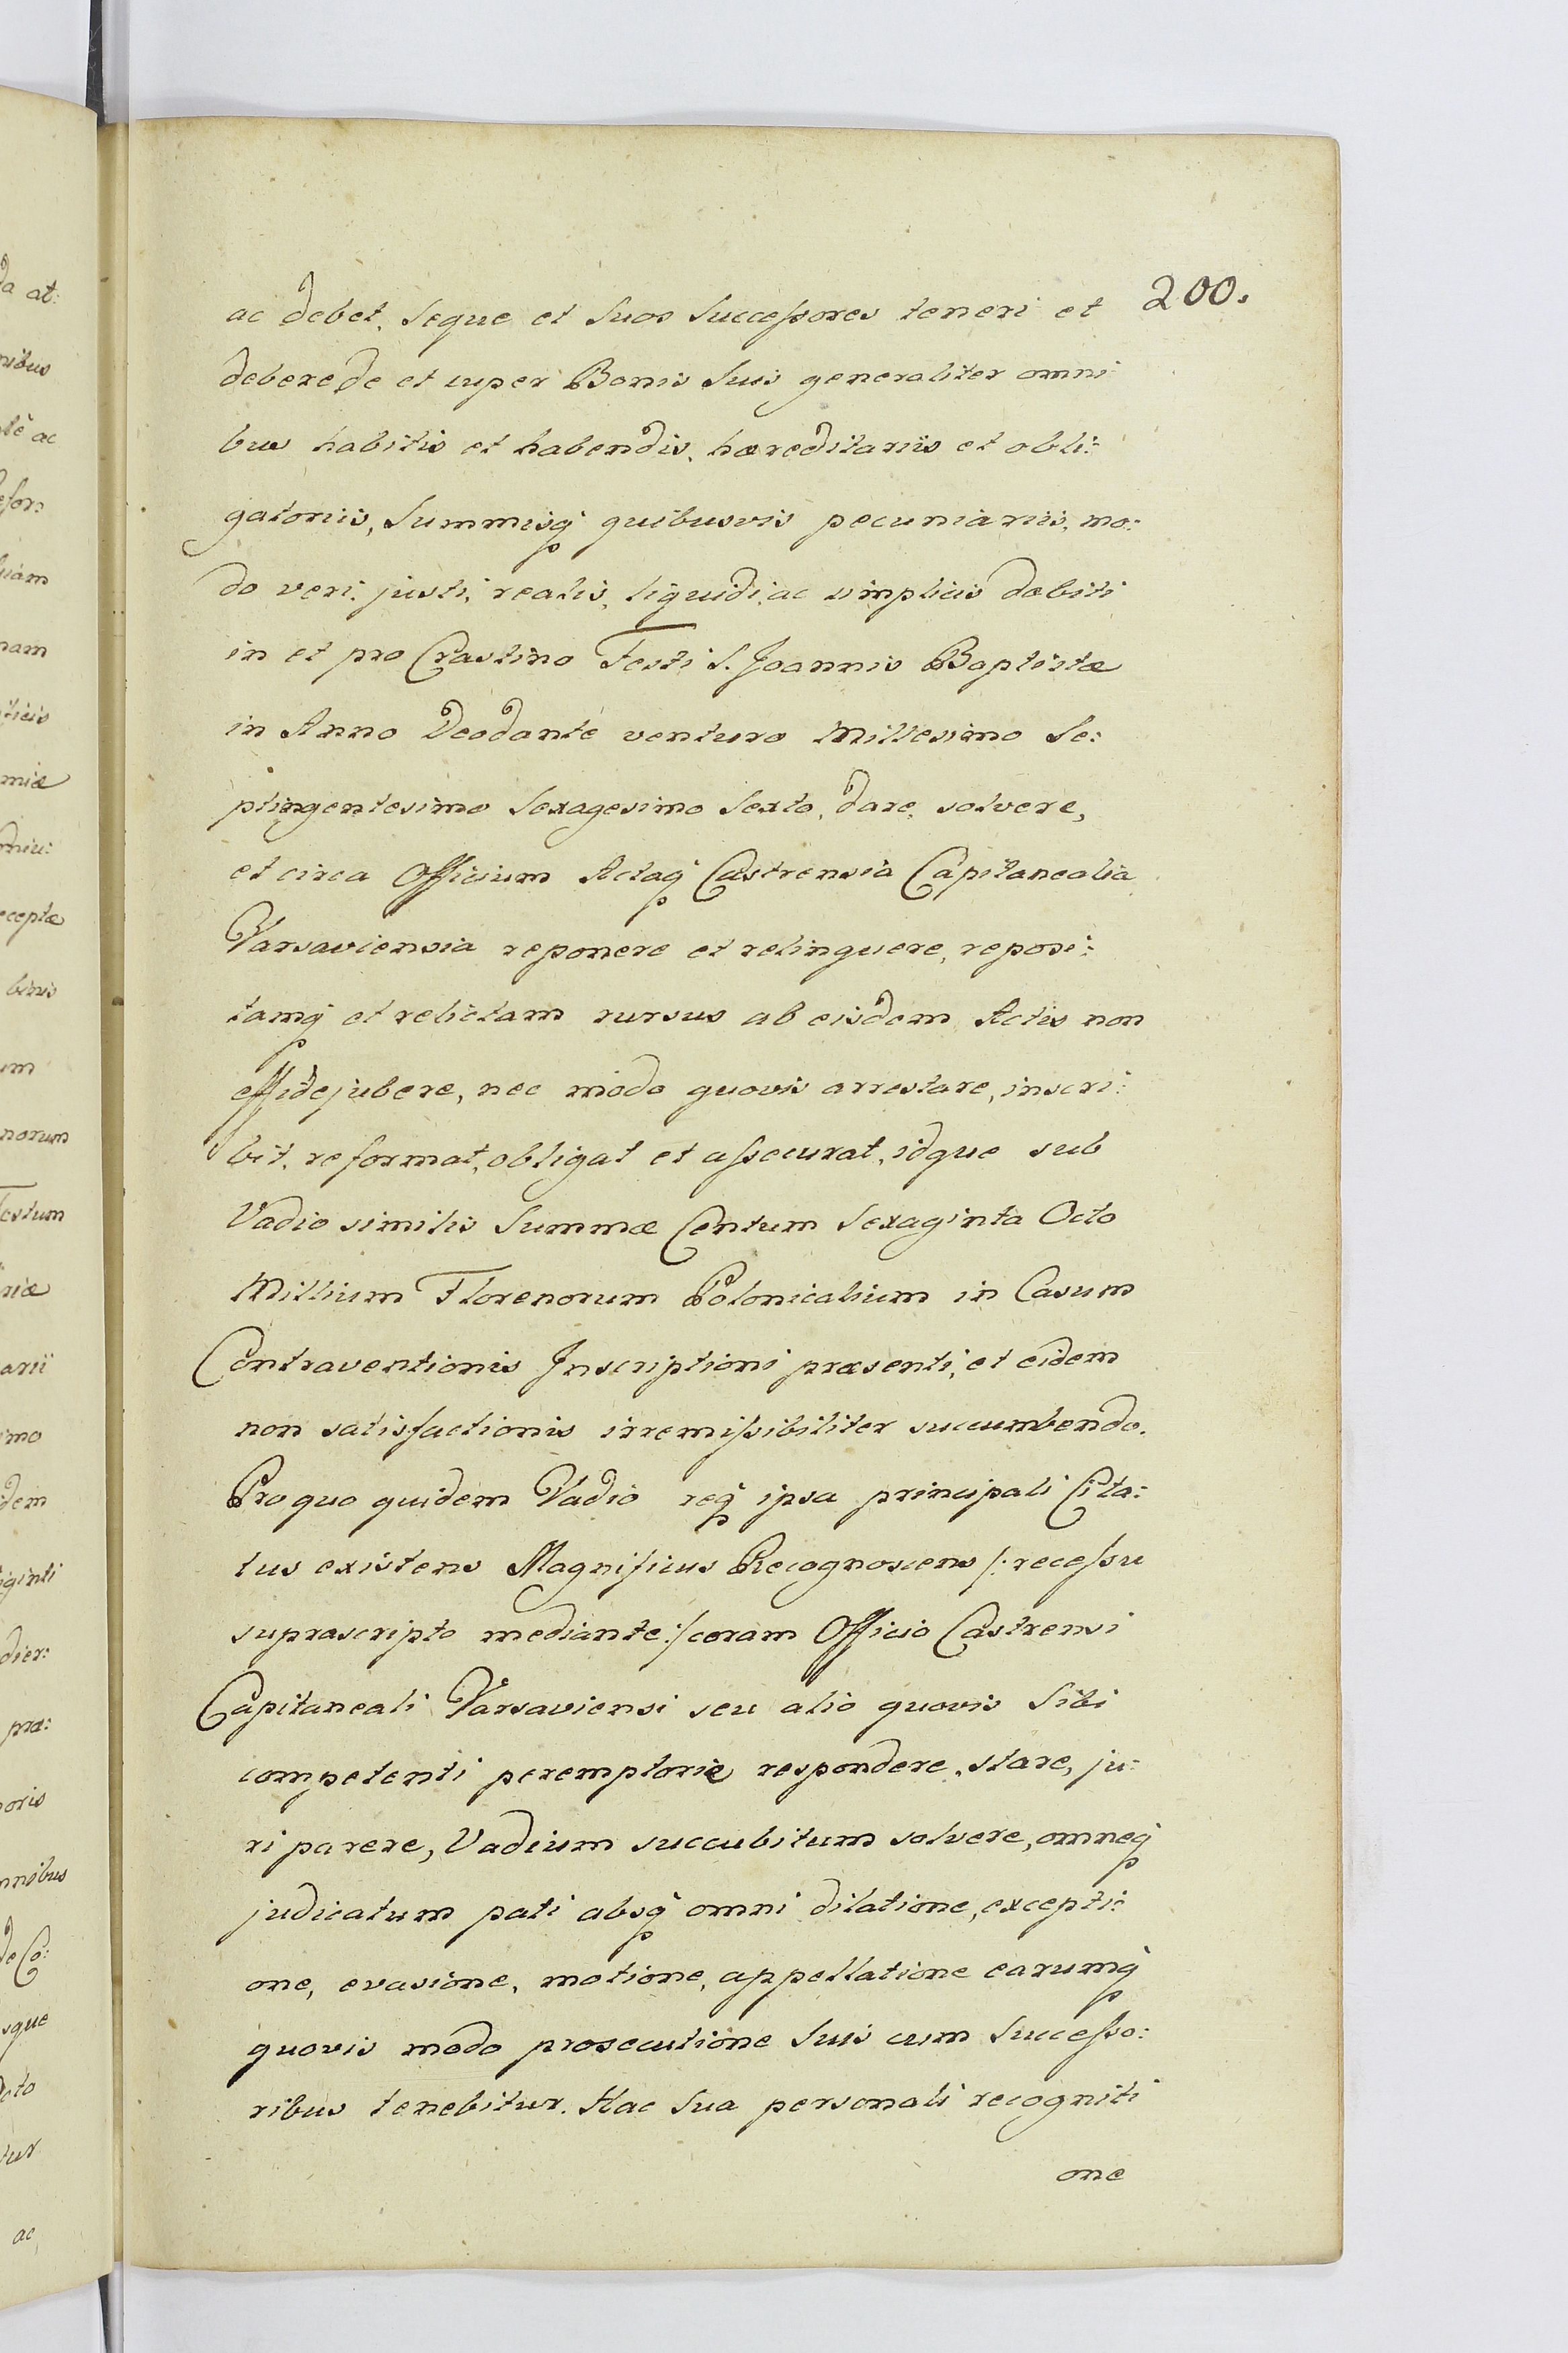 200.
ac debet, seque et Suos Successores teneri et
debere de et super Bonis Suis generaliter omni
bus habitis et habendis, hæreditariis et obli:
gatoriis, Summisq̃ quibusvis pecuniariis, mo:
do veri, justi, realis, liquidi, ac simplicis dæbiti
in et pro Crastino Festi S. Joannis Baptistæ
in Anno Deodante venturo Millesimo Se:
ptingentesimo Sexagesimo Sexto, dare, solvere,
et circa Officium Actaq̃ Castrensia Capitanealia
Varsaviensia reponere et relinquere, reposi:
tamq̃ et relictam rursus ab eisdem Actis non
effidejubere, nec modo quovis arrestare, inscri:
bit, reformat, obligat et assecurat, idque sub
Vadio similis Summæ Centum Sexaginta Octo
Millium Florenorum Polonicalium in Casum
Contraventionis Inscriptioni præsenti, et eidem
non satisfactionis irremissibiliter succumbendo.
Pro quo quidem Vadio req̃ ipsa principali Cita:
tus existens Magnificus Recognoscens /: recessu
suprascripto mediante :/ coram Officio Castrensi
Capitaneali Varsaviensi seu alio quovis Sibi
competenti peremptorie respondere, stare, ju:
ri parere, Vadium succubitum solvere, omneq̃
judicatum pati absq̃ omni dilatione, excepti:
one, evasione, motione, appellatione earumq̃
quovis modo prosecutione Suis cum Successo:
ribus tenebitur. Hac Sua personali recogniti
one
da at:
nibus
ac
uam
nam
ficis
miæ
ceptæ
binis
um
norum
estum
riæ
arii
imo
idem
iginti
dier:
præ:
oris
nnibus
de Co:
sque
cto
tur
ac